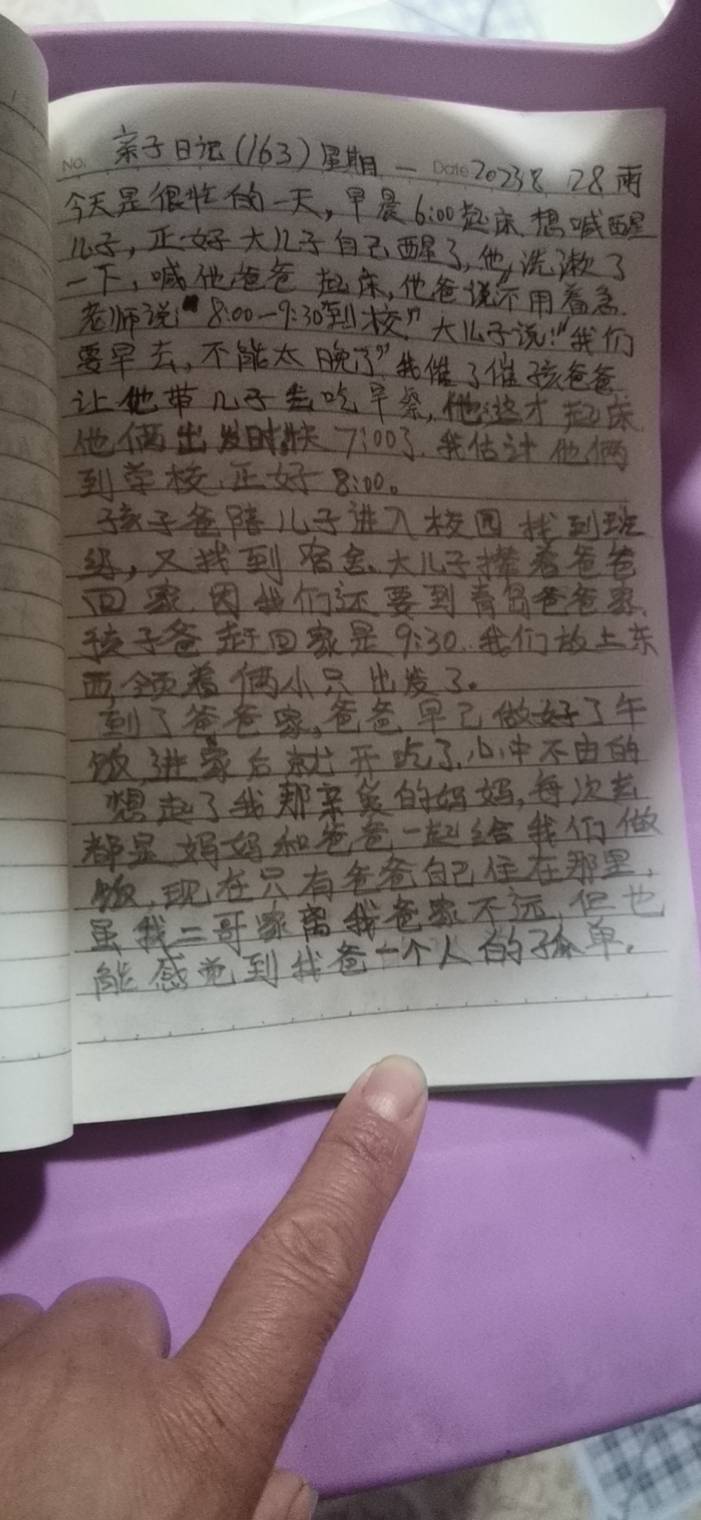 No. 亲子日记(163) 星期一 Date 2023 8. 28 雨
今天是很忙的一天，早晨6:00起床，想喊醒
儿子，正好大儿子自己醒了，他洗漱了
一下，喊他爸爸起床，他爸说不用着急.
老师说:"8:00-9:30到校"大儿子说:"我们
要早去，不能太晚了"我催了催孩爸爸
让他带儿子去吃早餐，他这才起床
他俩出发时快7:00了.我估计他俩
到学校正好8:00。
孩子爸陪儿子进入校园找到班
级，又找到宿舍.大儿子撵着爸爸
回家.因我们还要到青岛爸爸家.
孩子爸赶回家是9:30.我们放上东
西领着俩小只出发了。
到了爸爸家，爸爸早已做好了午
饭进家后就开吃了.心中不由的
想起了我那亲爱的妈妈，每次去
都是妈妈和爸爸一起给我们做
饭，现在只有爸爸自己住在那里，
虽我二哥家离我爸家不远，但也
能感觉到我爸一个人的孤单.